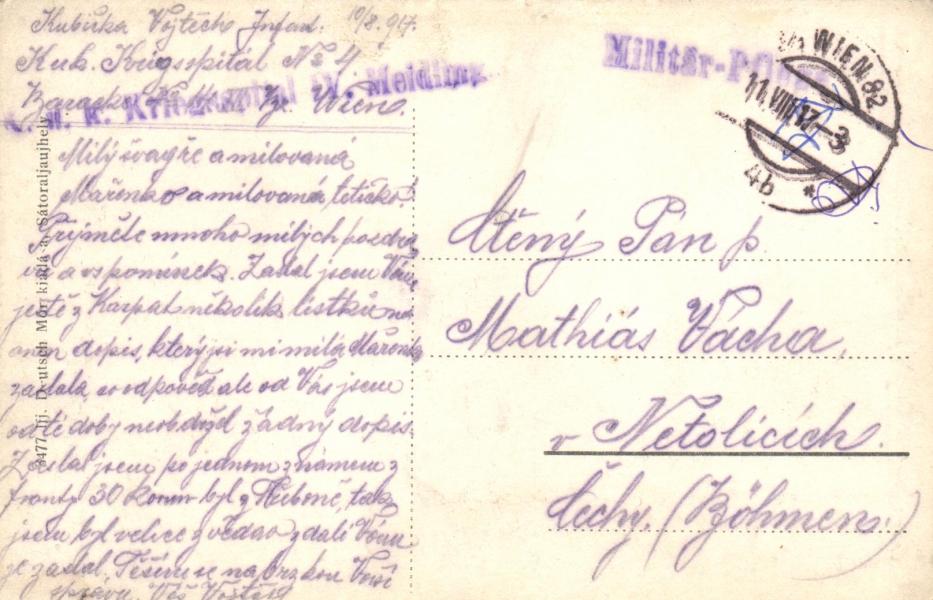 Kubička Vojtěch Infant. 10/8. 917.
K.u.k. Kriegsspitál № 4
Baracke Wien.
K. u. k. Kriegsspital IV. Meidling
Milý švagře a milovaná
Mařenko a milovaná tetičko!
Přijměte mnoho milých pozdra
vů a vzpomínek. Zaslal jsem Vám
ještě z Karpat několik lístků na
onen dopis, který jsi mi milá Mařenko
zaslala, co odpověď ale od Vás jsem
od té doby neobdržel žádný dopis.
Zaslal jsem po jednom známem z
fronty 30 korun byl z Hluboké, tak
jsem byl velice zvědav zdali Vám
je zaslal, Těším se na brzkou Vaší
zprávu. Váš Vojtěch
3477. Ifj. Deutsch Mór kiadása, Sátoraljaujhely
Militär-Pflege
WIEN 82
11.VIII.17-3
4b *
Ctěný Pán p.
Mathiás Vácha,
v Netolicích.
Čechy, (Böhmen.)